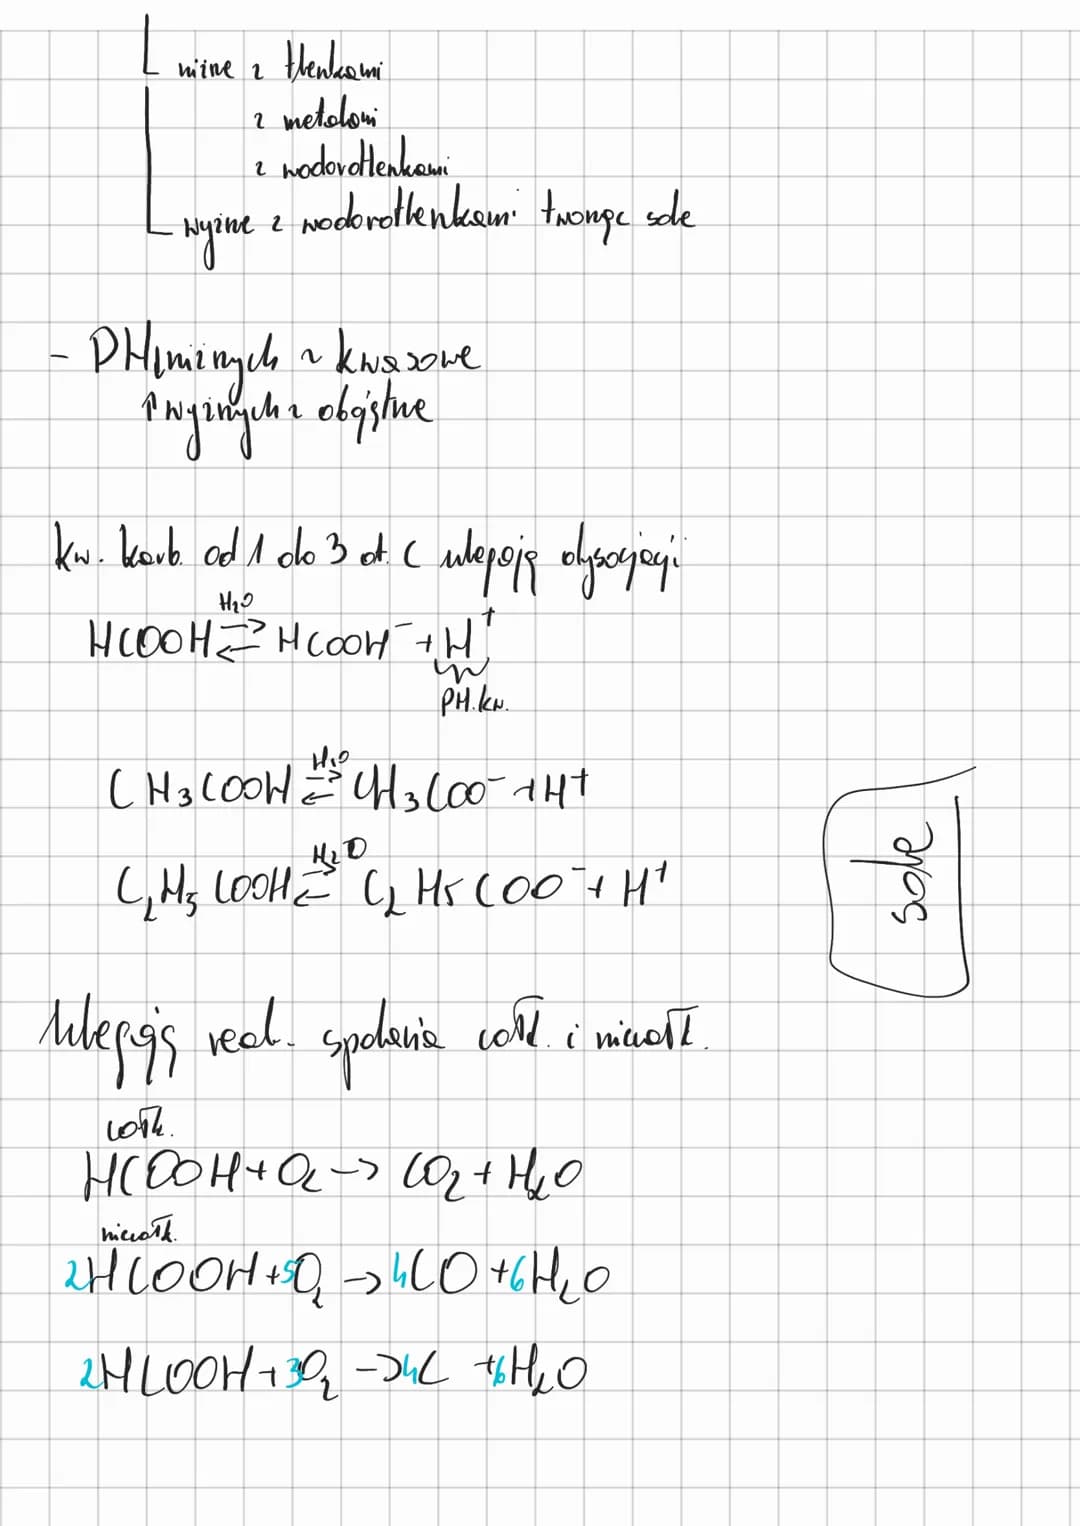 niżne z tlenkami
z metalami
z wodorotlenkami
wyższe z wodorotlenkami tworząc sole
- PH niżnych ~ kwasowe
wyższych ~ obojętne
kw. karb. od 1 do 3 at. C ulegają dysocjacji
H₂O
HCOOH ⇄ HCOOH⁻ + H⁺
PH. kw.
H₂O
CH₃COOH ⇄ CH₃COO⁻ + H⁺
H₂O
C₂H₅COOH ⇄ C₂H₅COO⁻ + H⁺
sole
Ulegają reak. spalania całk. i niecałk.
całk.
HCOOH + O₂ -> CO₂ + H₂O
niecałk.
2HCOOH + 5O₂ -> 4CO + 6H₂O
2HCOOH + 3O₂ -> 4C + 6H₂O